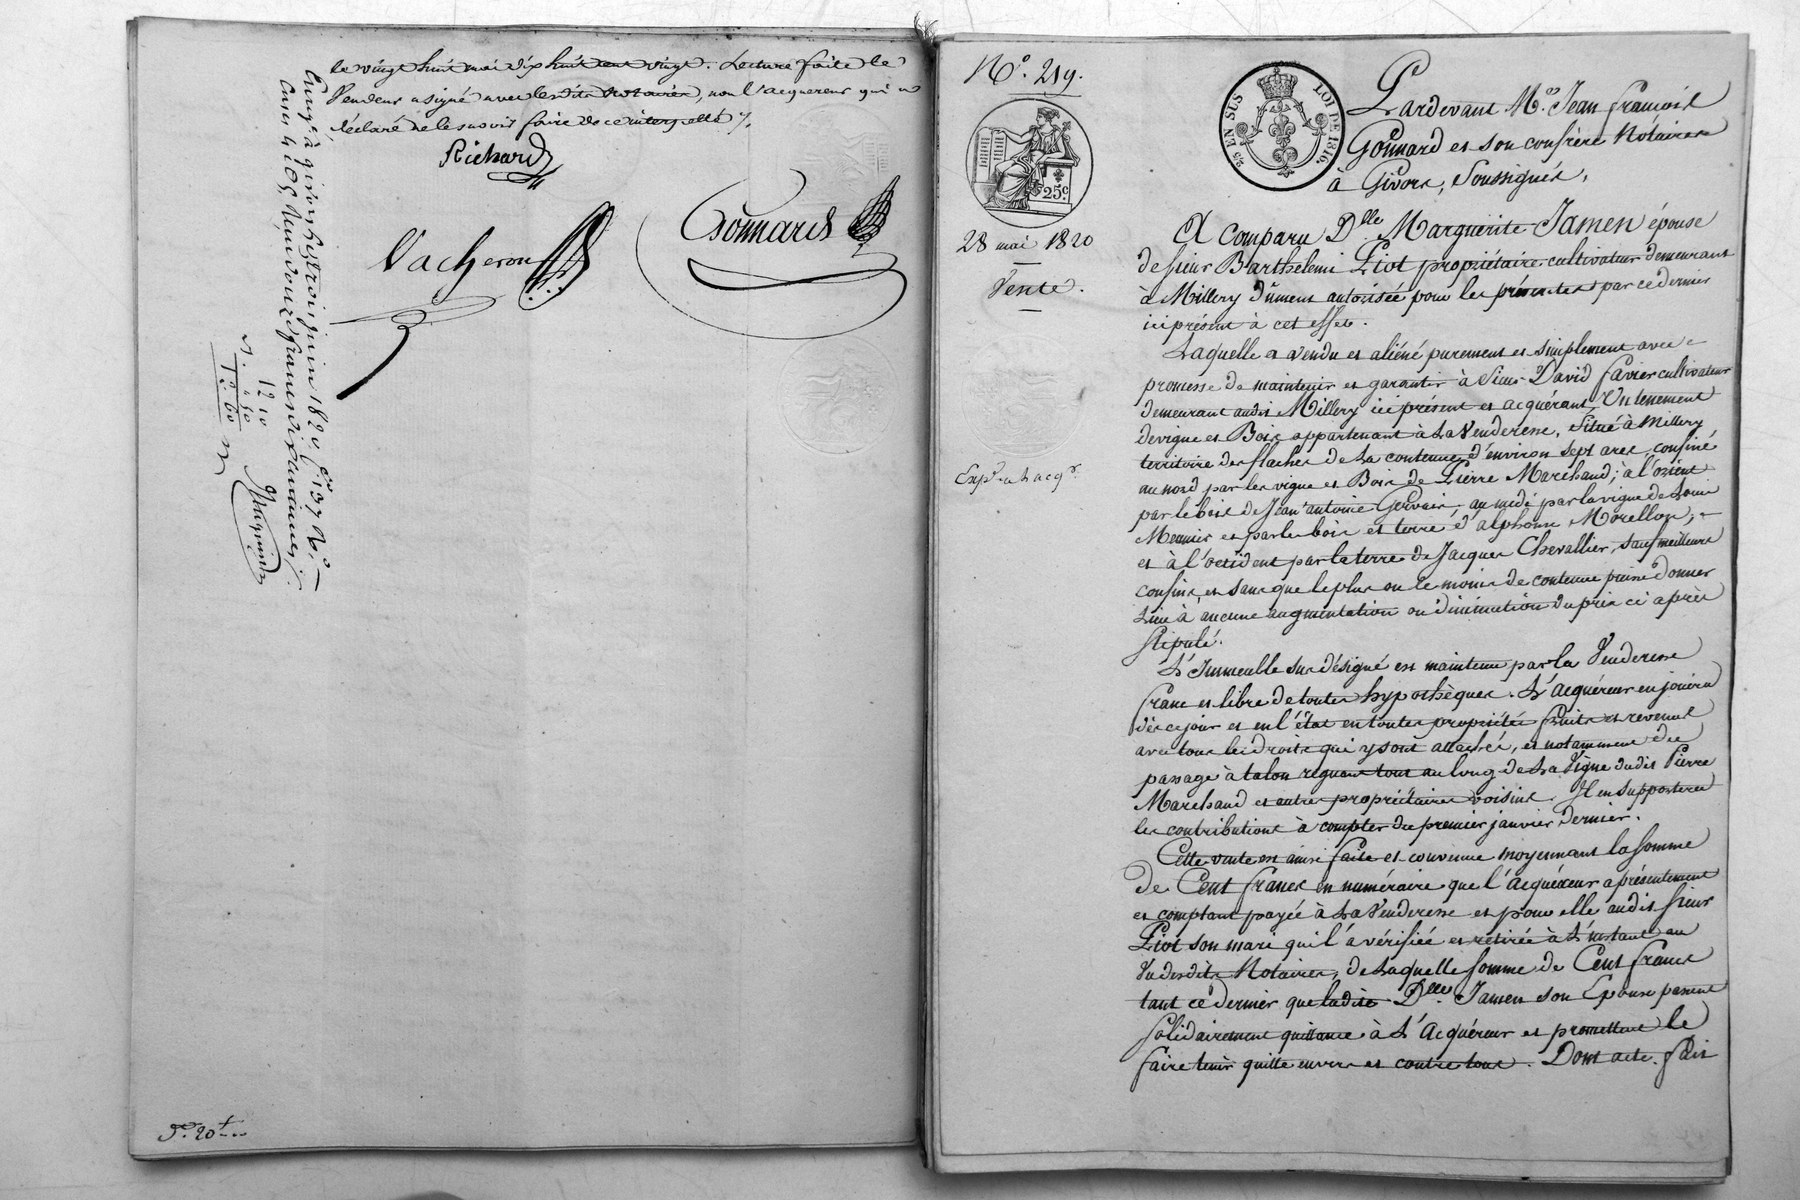 le vingt huit mai dix huit cent vingt. Lecture faite le
Vendeur a signé avec lesdits Notaires, non l'acquereur qui a
déclaré ne le savoir faire de ce interpellé /.
Richard
Vacheron
Gonnard
Enreg.é à givors le trois juin 1820 f.º 137 v.º
Cases 4 et 5, Reçu douze francs dix centimes
12 10
1.
P.r 20 +...
N.º 219.
25 c.
28 mai 1820
Vente.
Exp.on a l'acq.r
25 EN SUS LOI DE 1816.
Pardevant M.es Jean François
Gonnard et son confrère Notaires
à Givors, Soussignés,
A Comparu D.lle Marguerite Jamen épouse
de sieur Barthelemi Piot propriétaire cultivateur demeurant
à Millery dûment autorisée pour les présentes par ce dernier
ici présent à cet effet.
Laquelle a vendu et aliéné purement et simplement avec
promesse de maintenir et garantir à Sieur David Favier cultivateur
demeurant audit Millery ici présent et acquérant, Un tenement
de vigne et Bois appartenant à La Venderesse, situé à Millery
territoire des flaches de La contenue d'environ sept ares, confiné
au nord par les vigne et Bois de Pierre Marchand; à l'orient
par le bois de Jean antoine Gervais, au midi par la vigne de Louis
Meunier et par le bois et terre d'alphonse Morellon,
et à l'occident par la terre de Jacques Chevallier, sauf meilleurs
confins, et sans que le plus ou le moins de contenue puisse donner
Lieu à aucune augmentation ou diminution du prix ci après
stipulé.
L'Immeuble sus désigné est maintenu par la Venderesse
franc et libre de toutes hypothèques. L'acquéreur en jouira
dès ce jour et en l'état en toutes propriétés fruits et revenus
avec tous les droits qui y sont attachés, et notamment du
passage à talon regnant tout au long de La Vigne dudit Pierre
Marchand et autres propriétaires voisins. Il en supportera
les contributions à compter du premier janvier dernier.
Cette vente est ainsi faite et convenue moyennant la somme
de Cent francs en numéraire que l'acquéreur a présentement
et comptant payée à La Venderesse et pour elle audit sieur
Piot son mari qui l'a vérifiée et retirée à L'instant au
Vu desdits Notaires, de Laquelle somme de Cent francs
tant ce dernier que ladite D.lle Jamen son Epouse passent
solidairement quittance à L'Acquéreur et promettent le
faire tenir quitte envers et contre tous. Dont acte. fait